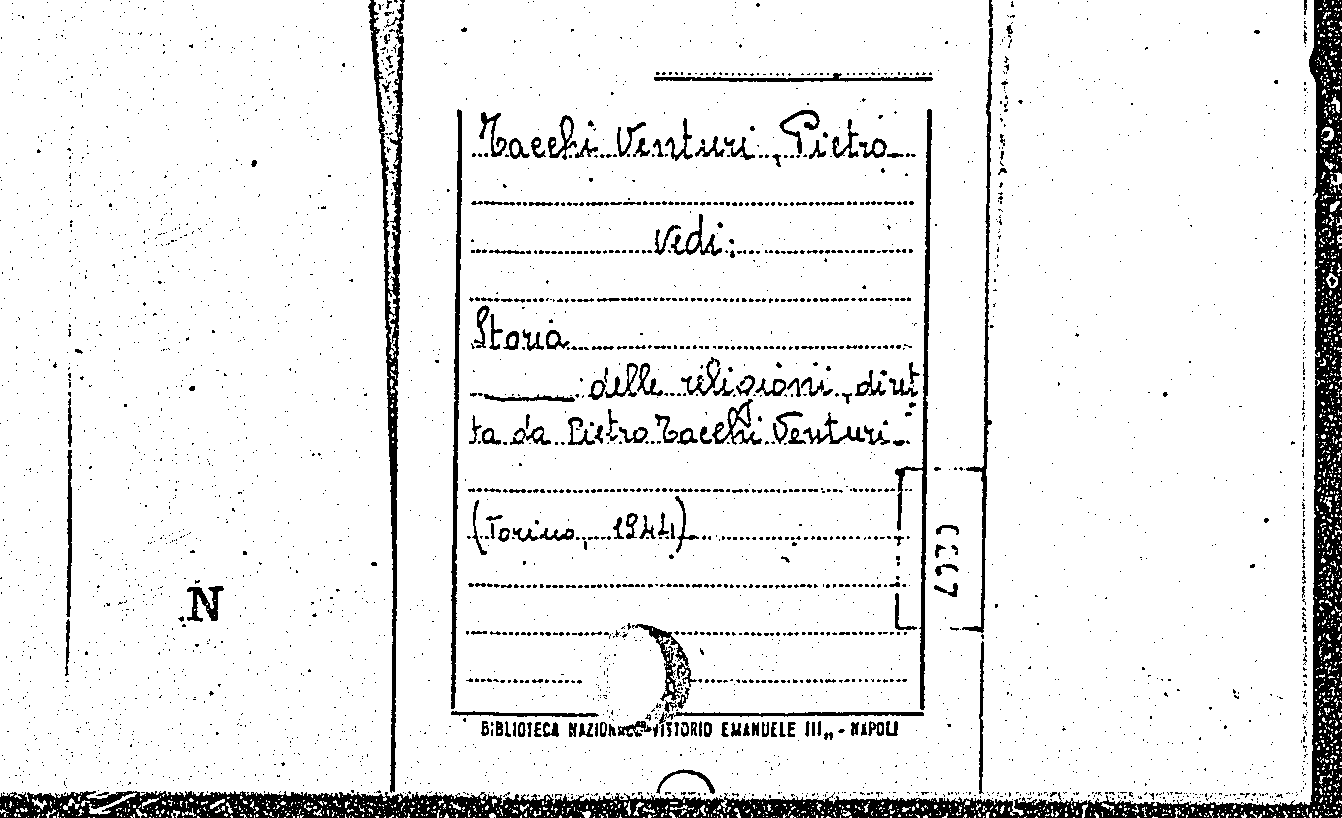 Tacchi Venturi, Pietro
vedi:
Storia
delle religioni, diret
ta da Pietro Tacchi Venturi.
(Torino, 1944).
N
BIBLIOTECA NAZIONALE VITTORIO EMANUELE III„ - NAPOLI